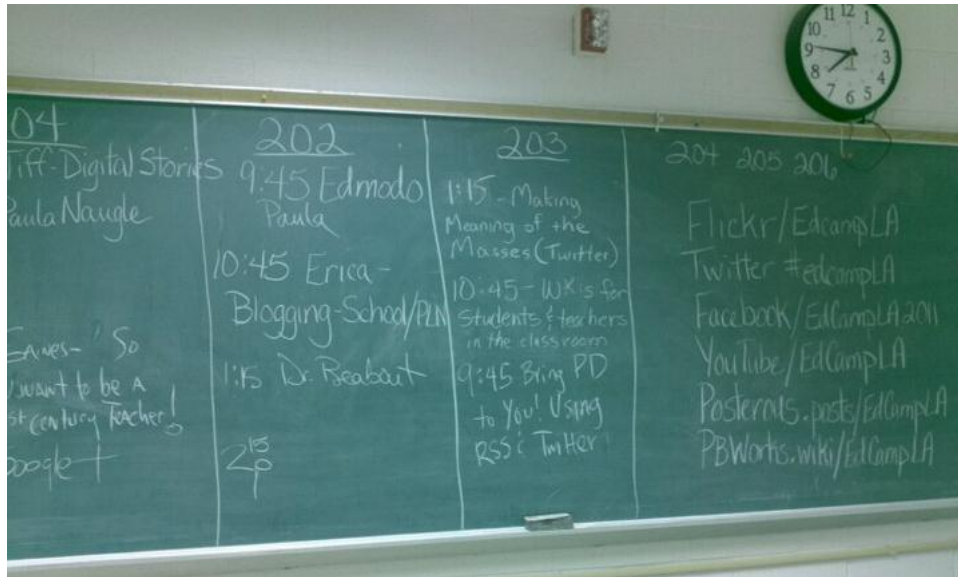 04
Tiff-Digital Stories
Paula Naugle
So
want to be a
st century Teacher!
Google+
202
9:45 Edmodo
Paula
10:45 Erica-
Blogging-School/PLN
1:15 Dr. Beabout
2 15
203
1:15 - Making
Meaning of the
Masses (Twitter)
10:45 - Wikis for
Students & teachers
in the classroom
9:45 Bring PD
to You! Using
RSS & Twitter
204 205 206
Flickr/EdcampLA
Twitter #edcampLA
Facebook/EdCampLA2011
YouTube/EdCampLA
Posterous.posts/EdCampLA
PBWorks.wiki/EdCampLA
11 12 1
10 2
9 3
8 4
7 6 5